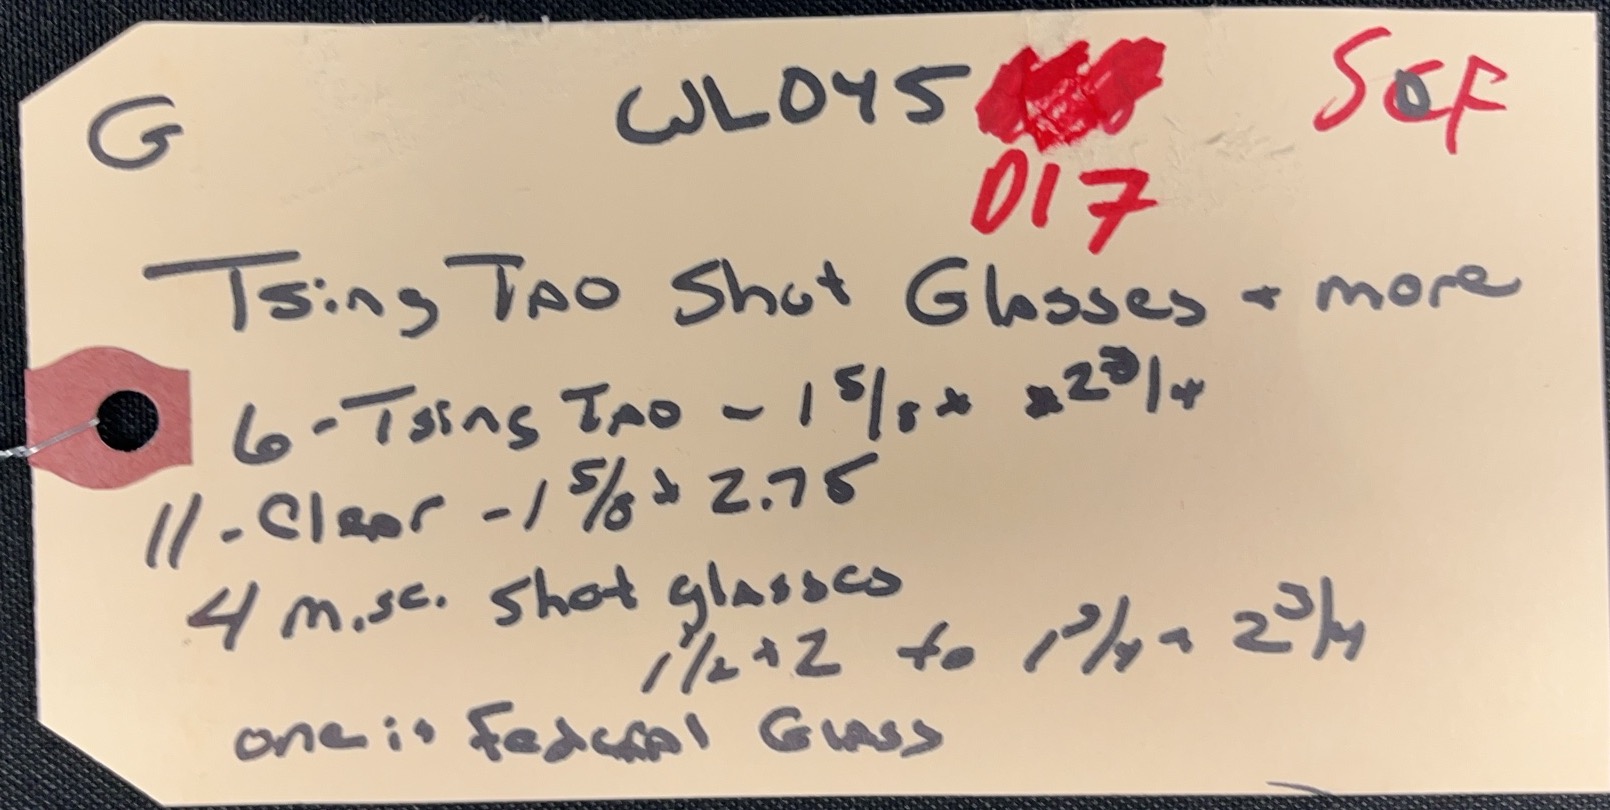 G WL045 SCF
D17
Tsing TAO Shot Glasses + more
6 - Tsing TAO - 1 5/8 x 2 3/4
11 - Clear - 1 5/8 x 2.75
4 misc. Shot glasses
1 1/2 x 2 to 1 3/4 x 2 3/4
one is Federal Glass